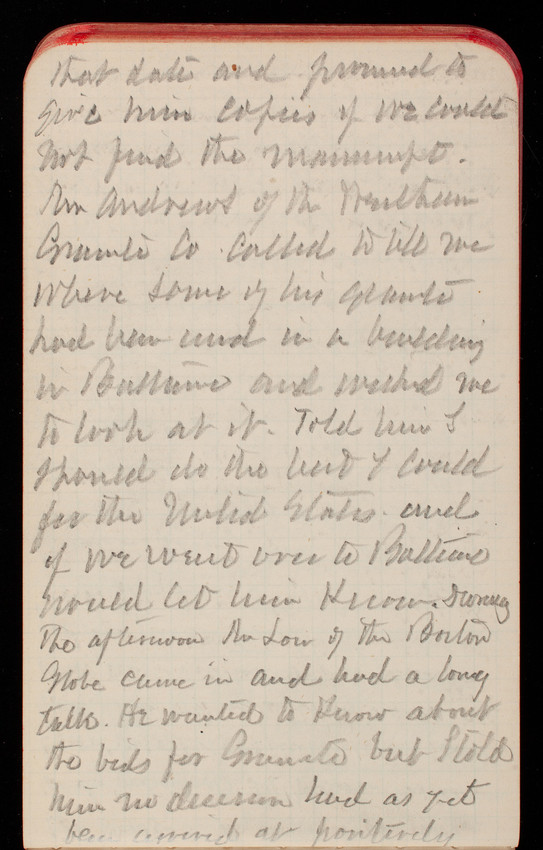 that date and promised to
give him copies if we could
not find the manuscript.
Mr Andrews of the
Granite Co called to tell me
where some of his granite
had been used in a building
in Baltimore and wished me
to look at it. Told him I
should do the best I could
for the United States and
if we went over to Baltimore
would let him know. During
the afternoon Mr Low of the Boston
Globe came in and had a long
talk. He wanted to know about
the bids for Granite but I told
him no decision had as yet
been arrived at positively